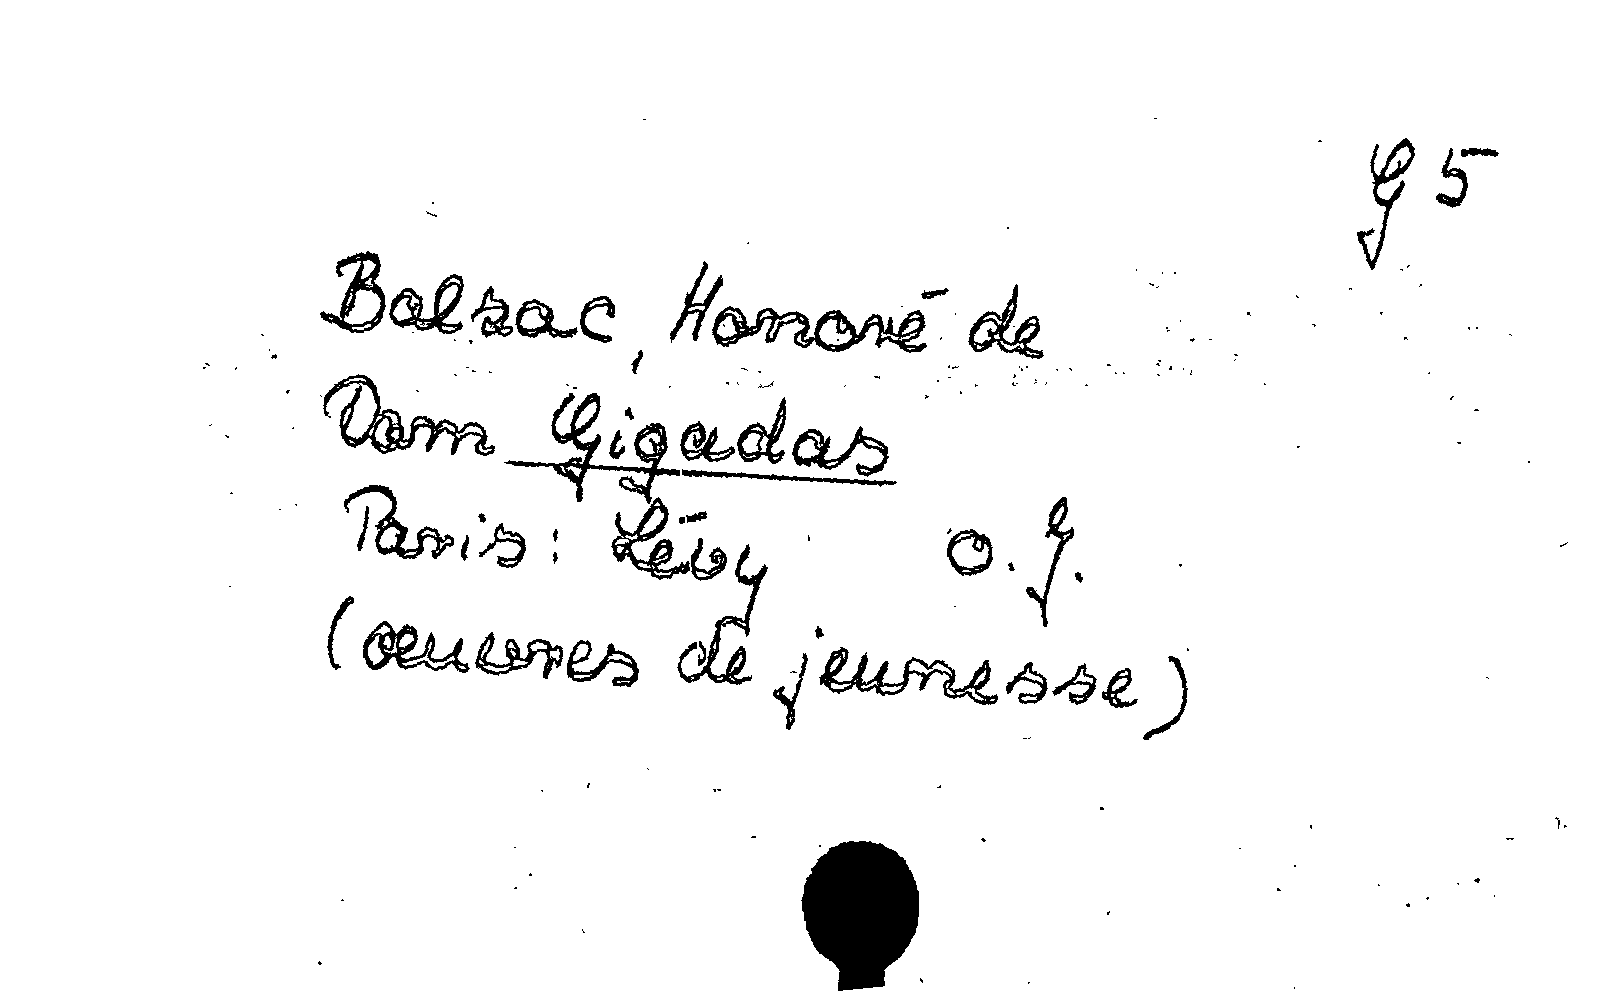 G 5
Balzac, Honoré de
Dom Gigadas
Paris: Lévy o. J.
(œuvres de jeunesse)